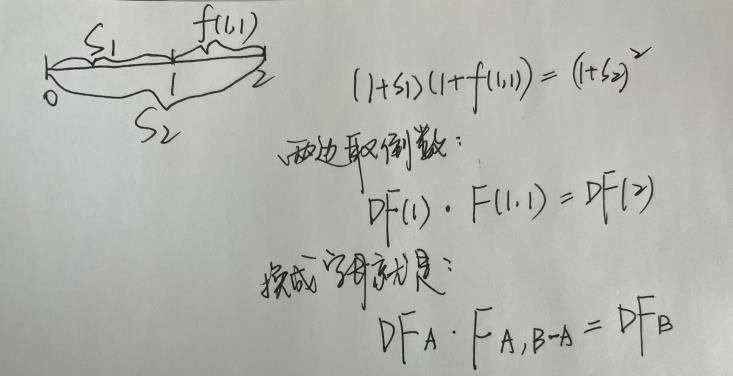 S₁ f(1,1)
0 1 2
S₂
(1+S₁)(1+f(1,1)) = (1+S₂)²
两边取倒数:
DF(1)·F(1,1) = DF(2)
换成字母就是:
DF_A·F_A,B-A = DF_B